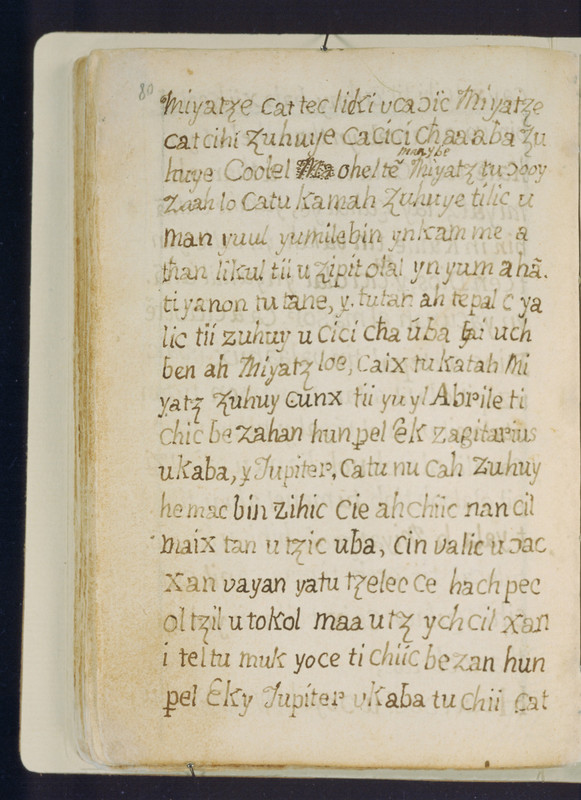 80
Miyatze cat tec likivcaɔiic Miyatze
cat cihi Zuhuye Ca cici chaa aba Zu
huye Coolel ohel te maaybe Miyatz tu ɔooy
Zaah lo Catu kamah Zuhuye tilic u
man yuul yumilebin ynkam me a
than likul tii u zipit olal yn yum a nã.
ti yanon tu tane, y. tutan ah tepal c ya
lic tii zuhuy u cici cha uba uch
ben ah Miyatz loe, Caix tu katah Mi
yatz Zuhuy Cunx tii yu yl Abrile ti
chic be zahan hunpel Ek zagitarius
ukaba, y Jupiter, Catu nu cah Zuhuy
he mac bin zihic Cie ah chiic nan cil
maix tan u tzic uba, Cin valic u ɔac
Xan vayan yatu tzelec ce hach pec
ol tzil u tokol maa utz ychcil xan
i tel tu muk yoce ti chiic be zan hun
pel Eky Jupiter vkaba tu chii Cat